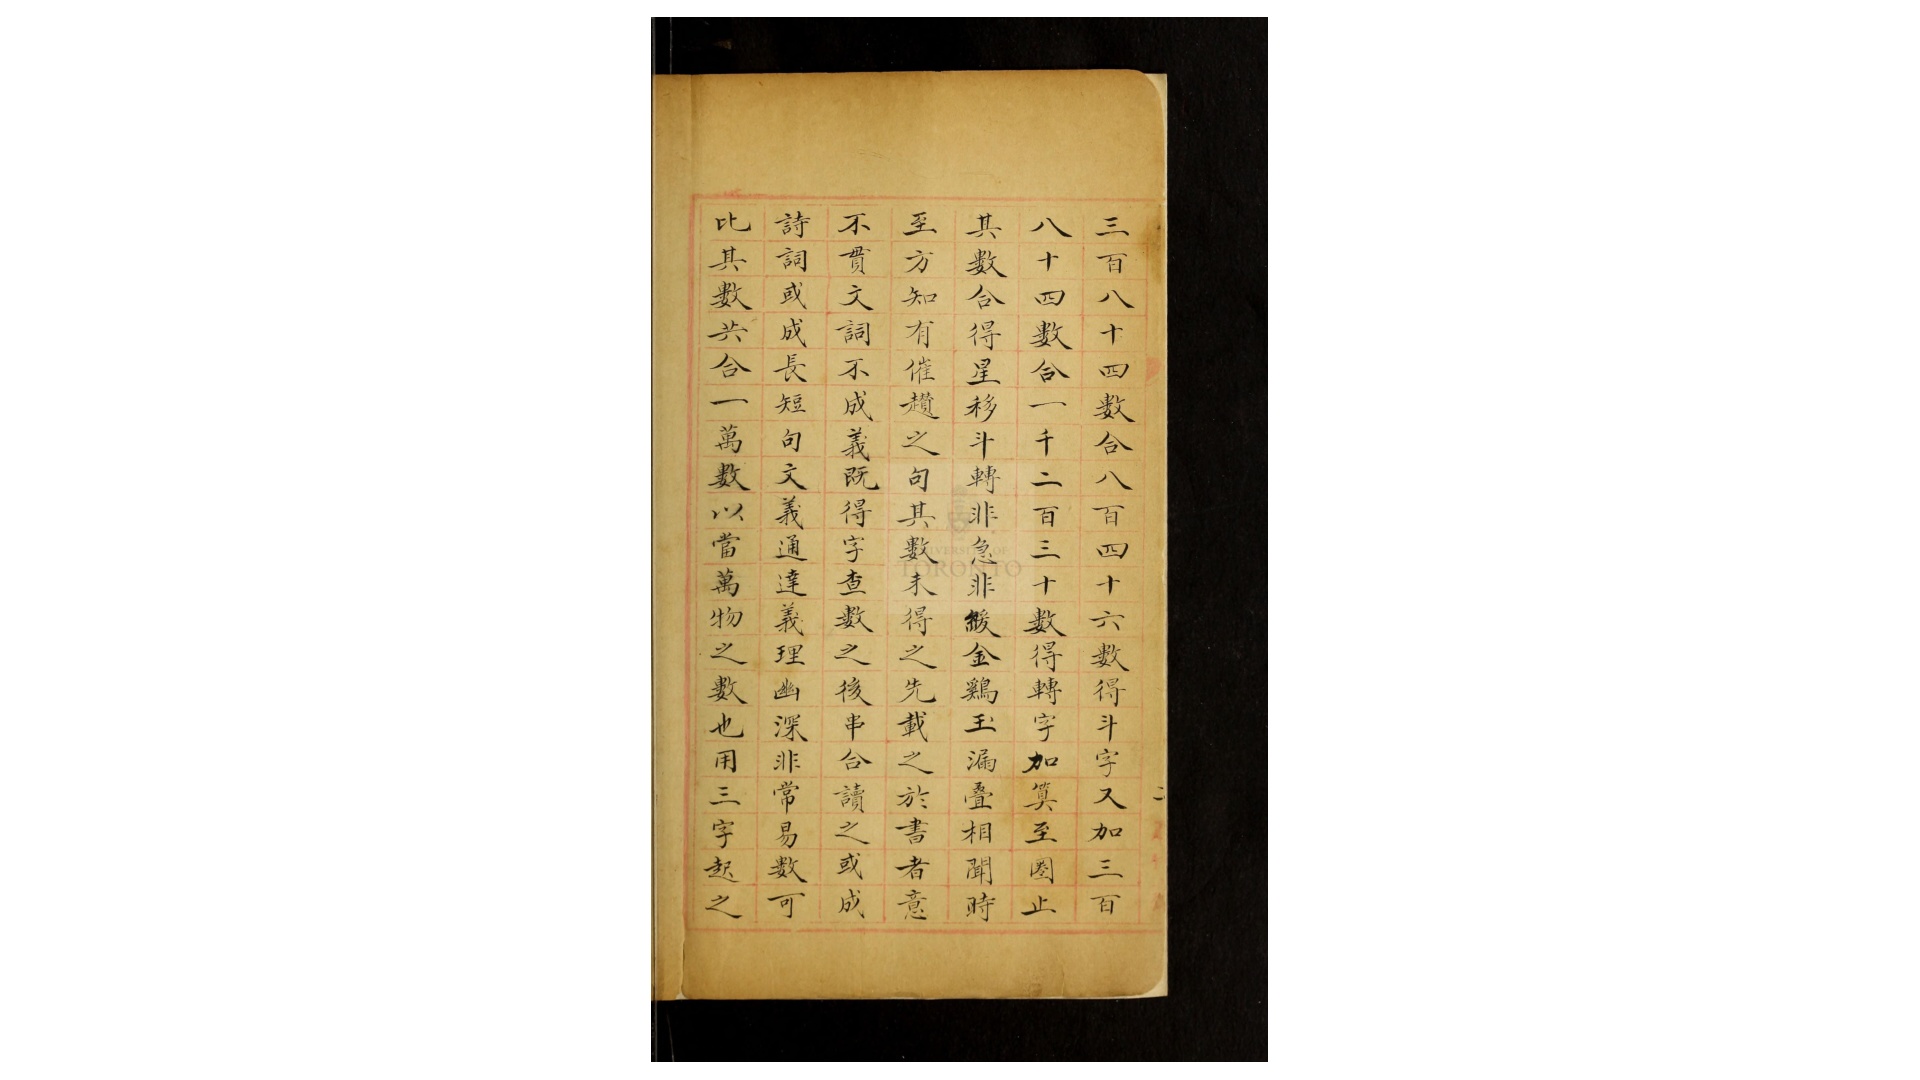 三百八十四數合八百四十六數得斗字又加三百
八十四數合一千二百三十數得轉字加算至圈止
其數合得星移斗轉非急非緩金鷄玉漏疊相聞時
至方知有催趲之句其數未得之先載之於書者意
不貫文詞不成義既得字查數之後串合讀之或成
詩詞或成長短句文義通達義理幽深非常易數可
比其數共合一萬數以當萬物之數也用三字起之
UNIVERSITY OF
TORONTO